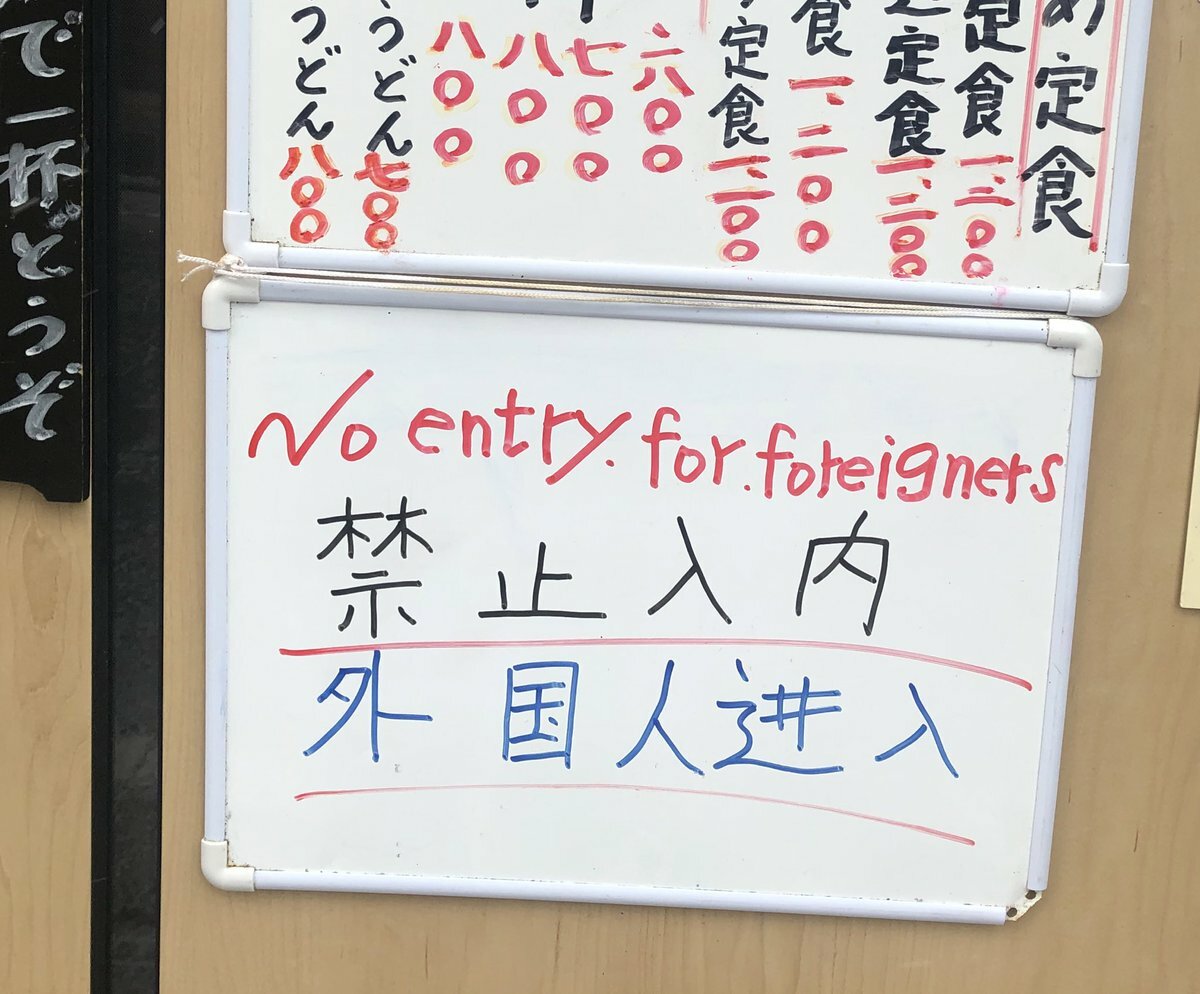 定食
定食 一、二〇〇
定食 一、二〇〇
食 一、二〇〇
定食 一、二〇〇
六〇〇
七〇〇
八〇〇
八〇〇
うどん 七〇〇
うどん 八〇〇
で一杯どうぞ
No entry. for. foreigners
禁止入内
外国人进入